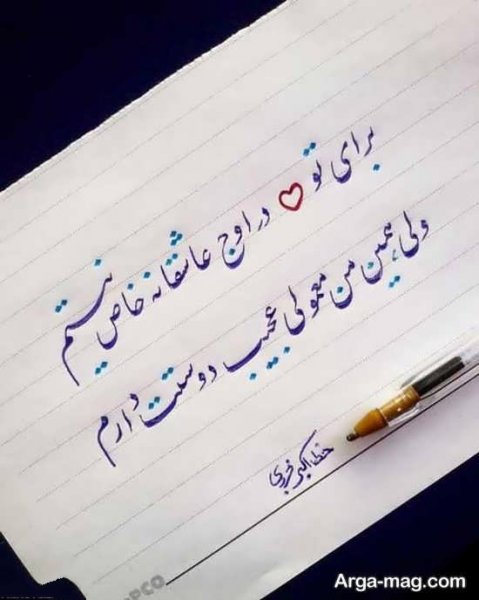 برای تو در اوج عاشقانه خاص نیستم
ولی همین من معمولی عجیب دوستت دارم
خط اکبر
OPCO
Arga-mag.com